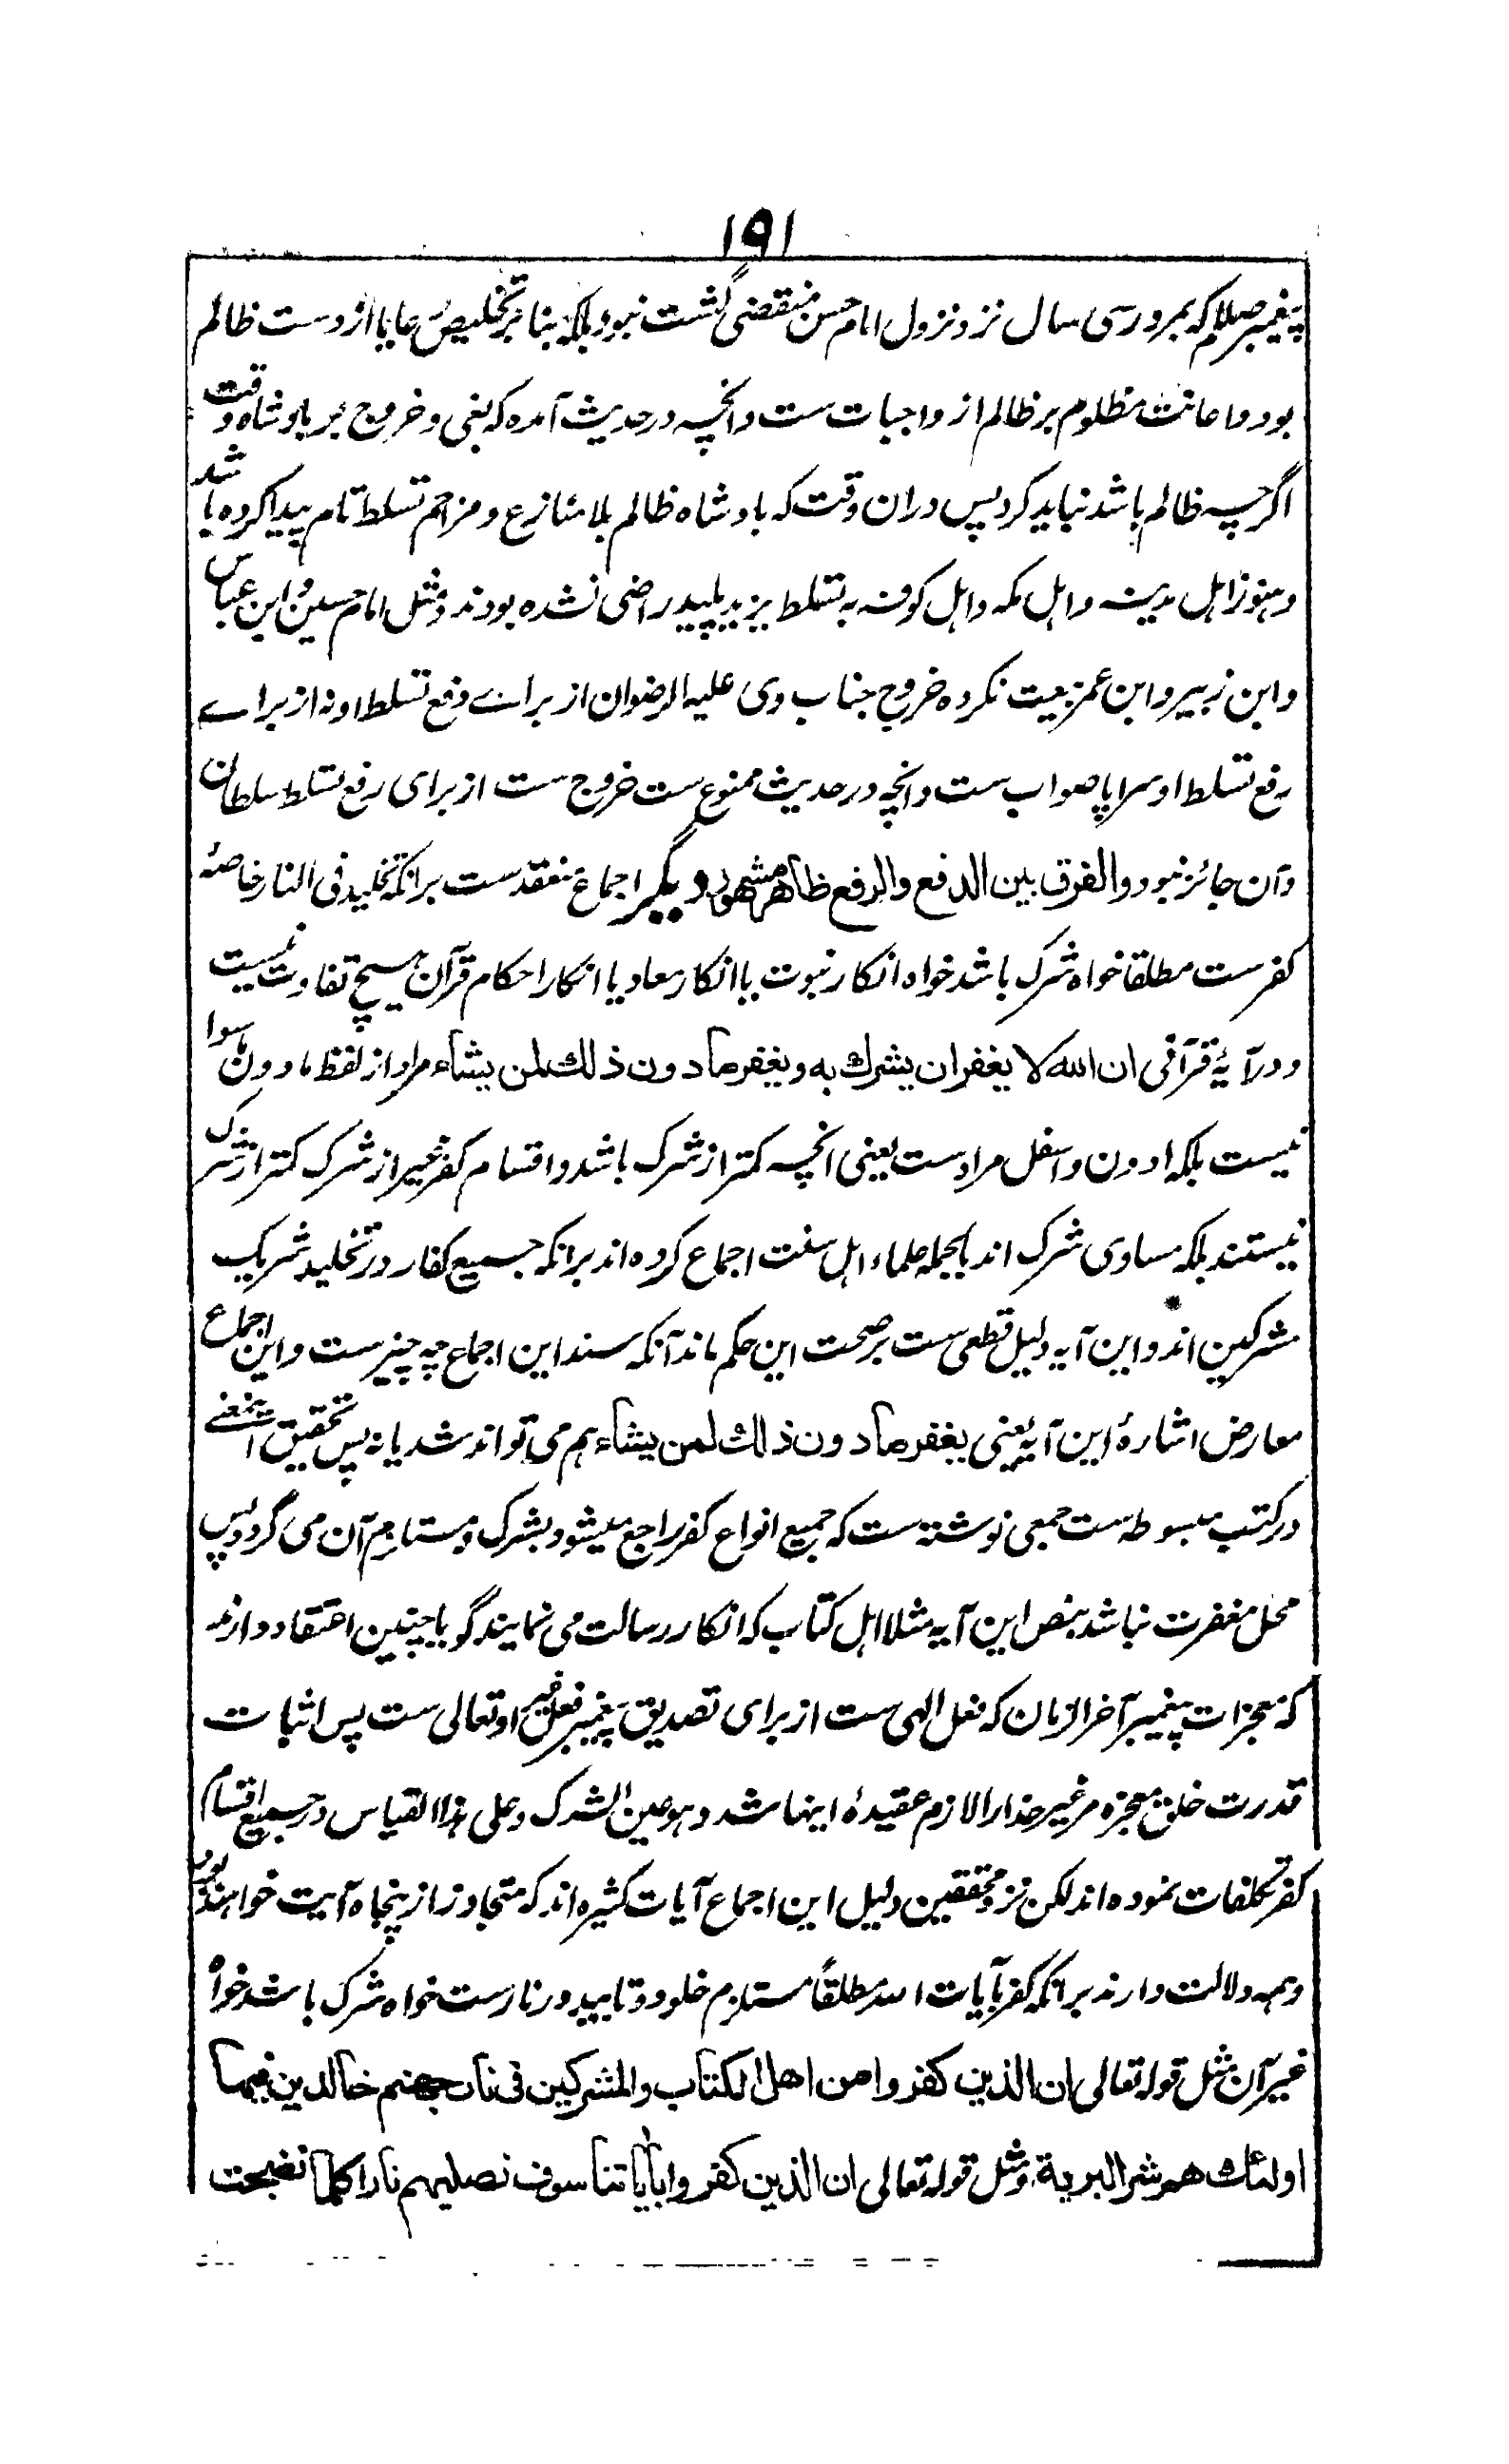 ۱۹۱
پیغمبر صلعم که بمرور سی سال نزد نزول امام حسن منقضی گشت نبود بلکه بنا بر تخلیص رعایا از دست ظالم
بود و اعانت مظلوم بر ظالم از واجبات ست و انچه در حدیث آمده که بغی و خروج بر بادشاه وقت
اگرچه ظالم باشد نباید کرد پس دران وقت که بادشاه ظالم بلا منازع و مزاحم تسلط تام پیدا کرده باشد
و هنوز اهل مدینه و اهل مکه و اهل کوفه به تسلط یزید پلید راضی نشده بودند و مثل امام حسین و ابن عباس
و ابن زبیر و ابن عمر بیعت نکرده خروج جناب وی علیه الرضوان از براے دفع تسلط او نه از براے
رفع تسلط او سراپا صواب ست و انچه در حدیث ممنوع ست خروج ست از برای رفع تسلط سلطان
و آن جائز نبود و الفرق بین الدفع والرفع ظاهر مشهور دیگر اجماع منعقد ست برانکه تخلید فی النار خاصهٔ
کفر ست مطلقا خواه شرک باشد خواه انکار نبوت یا انکار معاد یا انکار احکام قرآن هیچ تفاوت نیست
و در آیهٔ قرآنی ان الله لا یغفر ان یشرك به و یغفر ما دون ذلك لمن یشاء مراد از لفظ ما دون ما سوا
نیست بلکه ادون و اسفل مراد ست یعنی انچه کمتر از شرک باشد و اقسام کفر غیر از شرک کمتر از شرک
نیستند بلکه مساوی شرک اند بالجمله علماء اهل سنت اجماع کرده اند برانکه جمیع کفار در تخلید شریک
مشرکین اند و این آیه دلیل قطعی ست بر صحت این حکم ماند آنکه سند این اجماع چه چیز ست و این اجماع
معارض اشارهٔ این آیه یعنی یغفر ما دون ذلك لمن یشاء هم می تواند شد یا نه پس تحقیق این معنے
در کتب مبسوطه ست جمعی نوشته ست که جمیع انواع کفر راجع میشود بشرک و مستلزم آن می گردد پس
محل مغفرت نباشد بنص این آیه مثلا اهل کتاب که انکار رسالت می نمایند گویا چنین اعتقاد دارند
که معجزات پیغمبر آخر الزمان که فعل الهی ست از برای تصدیق پیغمبر فعل غیر او تعالی ست پس اثبات
قدرت خلق معجزه مر غیر خدا را لازم عقیدهٔ اینها شد و هو عین الشرک و علی هذا القیاس در جمیع اقسام
کفر تکلفات نموده اند لکن نزد محققین دلیل این اجماع آیات کثیره اند که متجاوز از پنجاه آیت خواهند بود
و همه دلالت دارند برانکه کفر بآیات الله مطلقاً مستلزم خلود و تابید در نار ست خواه شرک باشد خواه
غیر آن مثل قوله تعالی ان الذین کفروا من اهل الکتاب والمشرکین فی نار جهنم خالدین فیها
اولئك هم شر البریة و مثل قوله تعالی ان الذین کفروا بآیاتنا سوف نصلیهم نارا کلما نضجت